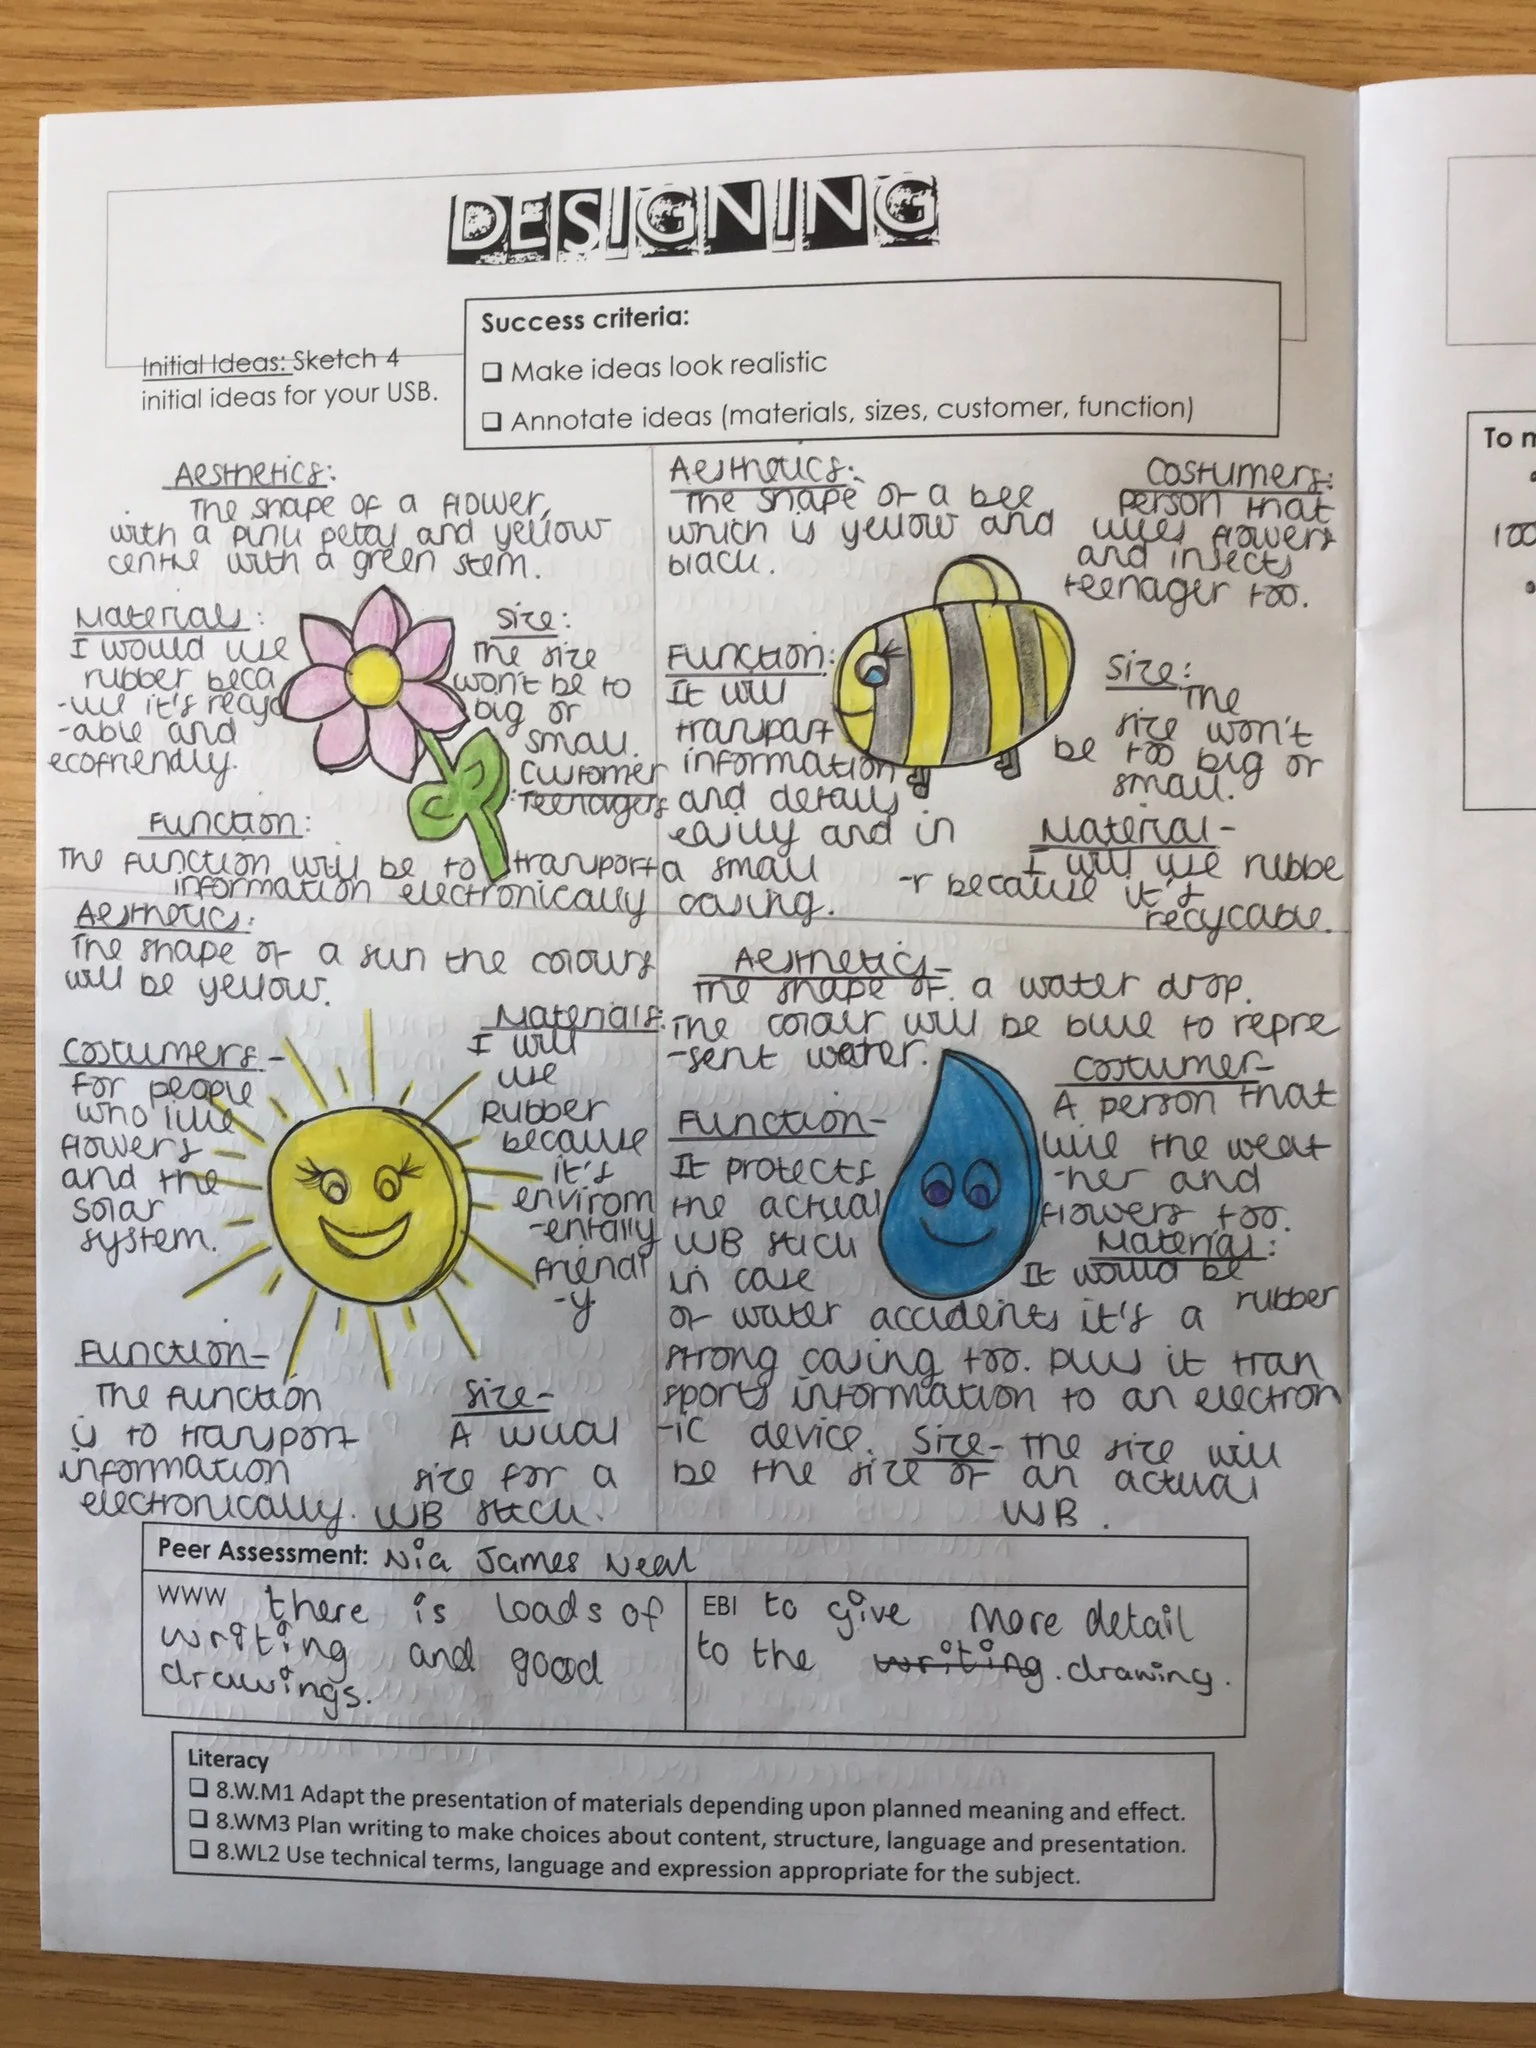 DESIGNING
Success criteria:
❑ Make ideas look realistic
❑ Annotate ideas (materials, sizes, customer, function)
Initial Ideas: Sketch 4
initial ideas for your USB.
Aesthetics:
The shape of a flower,
with a pink petal and yellow
centre with a green stem.
Materials:
I would use
rubber beca
-use it's recyc
-able and
ecofriendly.
Size:
The size
won't be to
big or
small.
Customer
: Teenagers
Function:
The function will be to transport
information electronically
Aesthetics:
The shape of a bee
which is yellow and
black.
Costumers:
person that
likes flowers
and insects
teenager too.
Function:
It will
transport
information
and details
easily and in
a small
casing.
Size:
The
size won't
be too big or
small.
Material-
I will use rubbe
-r because it's
recycable.
Aesthetics:
The shape of a sun the colours
will be yellow.
Costumers-
For people
who like
flowers
and the
solar
system.
Materials:
I will
use
Rubber
because
it's
envirom
-entally
friendl
-y.
Function-
The function
is to transport
information
electronically.
Size-
A usual
size for a
USB stick.
Aesthetics-
The shape of a water drop.
The colour will be blue to repre
-sent water.
Costumer-
A person that
like the weat
-her and
flowers too.
Function-
It protects
the actual
USB stick
in case
of water accidents it's a
strong casing too. Plus it tran
sports information to an electron
-ic device.
Material:
It would be
rubber
Size- The size will
be the size of an actual
USB.
Peer Assessment: Nia James Neal
WWW there is loads of
writing and good
drawings.
EBI to give more detail
to the writing. drawing.
Literacy
❑ 8.W.M1 Adapt the presentation of materials depending upon planned meaning and effect.
❑ 8.WM3 Plan writing to make choices about content, structure, language and presentation.
❑ 8.WL2 Use technical terms, language and expression appropriate for the subject.
To m
100